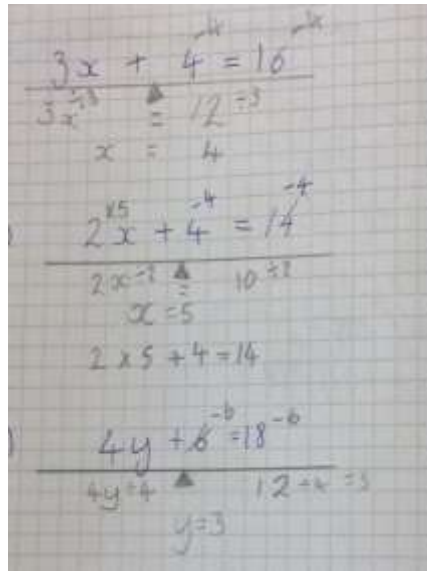 -4 -4
3x + 4 = 16
3x÷3 = 12÷3
x = 4
x5 -4 -4
2x + 4 = 14
2x÷2 = 10÷2
x = 5
2 x 5 + 4 = 14
4y + 6 -6 = 18 -6
4y÷4 12÷4 = 3
y = 3